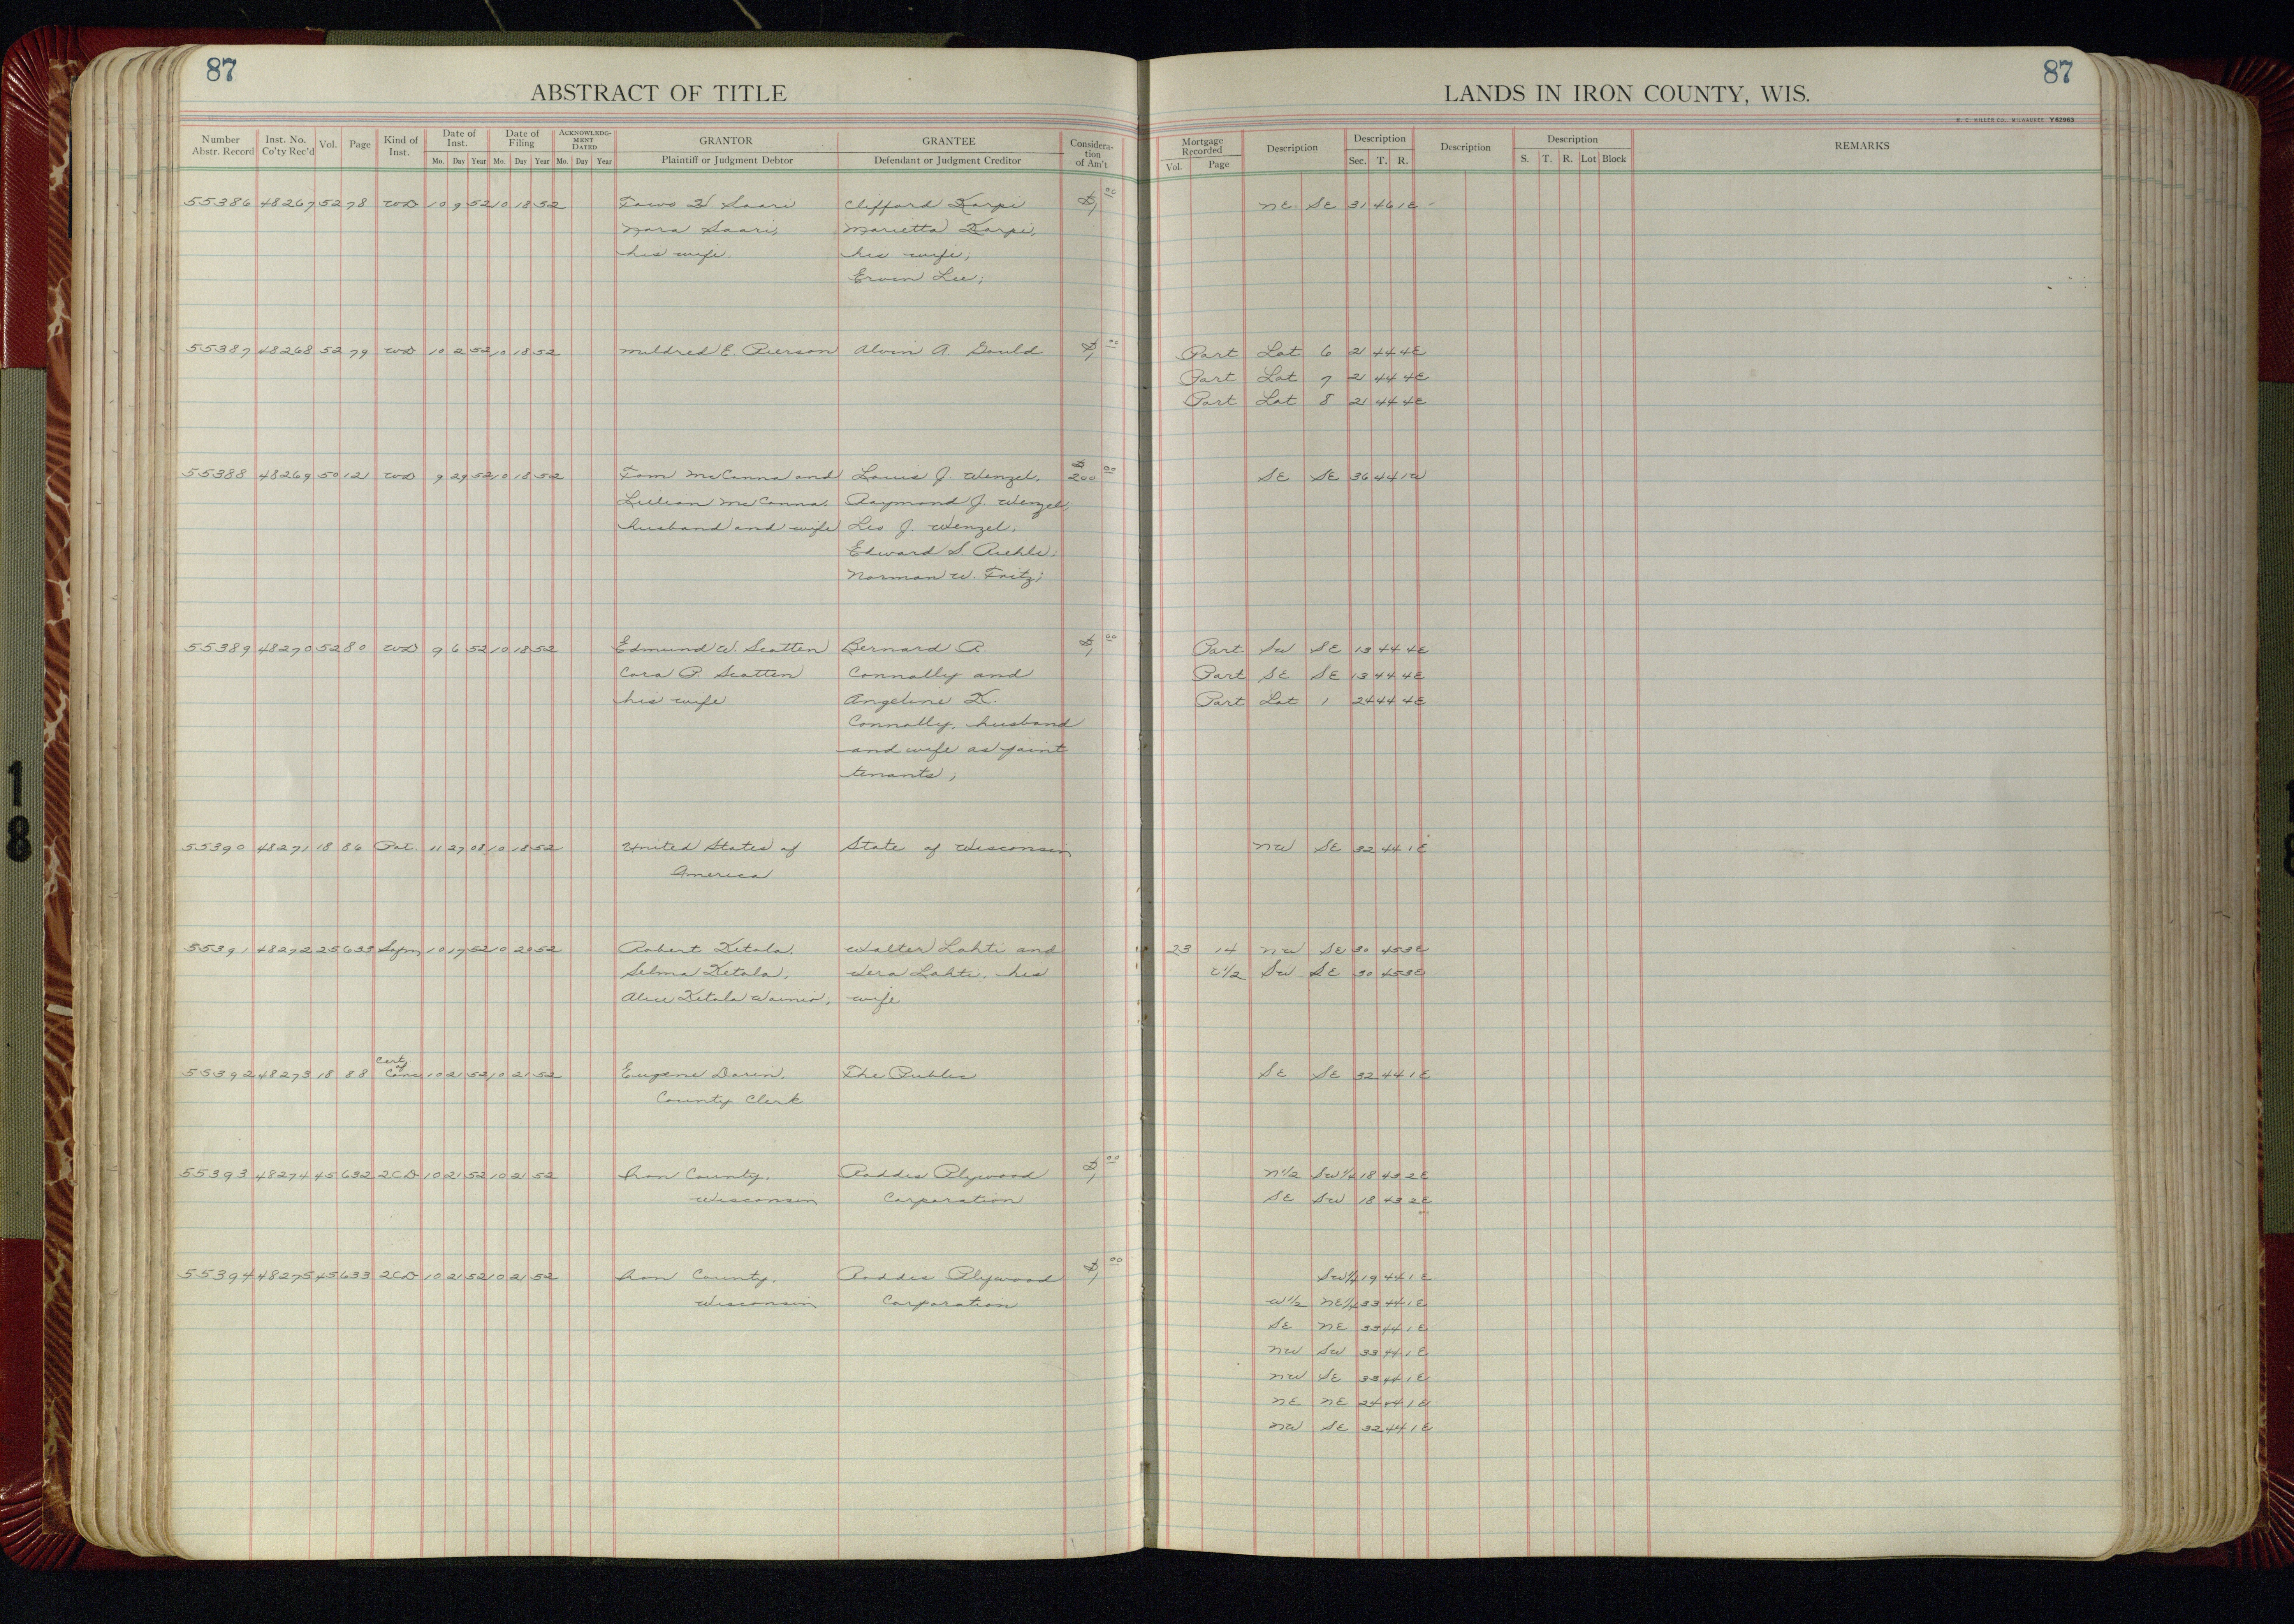 87
87
ABSTRACT OF TITLE
LANDS IN IRON COUNTY, WIS.
H. C. MILLER CO., MILWAUKEE Y62963
Number Abstr. Record Inst. No. Co'ty Rec'd Vol. Page Kind of Inst. Date of Inst. Mo. Day Year Date of Filing Mo. Day Year ACKNOWLEDGMENT DATED Mo. Day Year GRANTOR Plaintiff or Judgment Debtor GRANTEE Defendant or Judgment Creditor Consideration of Am't
Mortgage Recorded Vol. Page Description Description Sec. T. R. Description Description S. T. R. Lot Block REMARKS
55386 48267 52 78 WD 10 9 52 10 18 52 Toivo W. Saari Clifford Karpi $1 00 NE SE 31 46 1E
Nora Saari, Marietta Karpi,
his wife. his wife;
Ervin Lee;
55387 48268 52 79 WD 10 2 52 10 18 52 Mildred E. Pierson Alvin A. Gould $1 00 Part Lot 6 21 44 4E
Part Lot 7 21 44 4E
Part Lot 8 21 44 4E
55388 48269 50 121 WD 9 29 52 10 18 52 Tom McCanna and Louis J. Wenzel, $200 00 SE SE 36 44 1W
Lillian McCanna, Raymond J. Wenzel,
husband and wife Leo J. Wenzel;
Edward S. Riehle;
Norman W. Fritz;
55389 48270 52 80 WD 9 6 52 10 18 52 Edmund W. Scatten Bernard R. $1 00 Part SW SE 13 44 4E
Cora P. Scatten Connally and Part SE SE 13 44 4E
his wife Angeline K. Part Lot 1 24 44 4E
Connally, husband
and wife as joint
tenants;
55390 48271 18 86 Pat. 11 27 08 10 18 52 United States of State of Wisconsin NW SE 32 44 1E
America
55391 48272 25 633 10 17 52 10 20 52 Robert Ketola, Walter Lahti and 23 14 NW SE 30 45 3E
Selma Ketola; Vera Lahti, his E1/2 SW SE 30 45 3E
Alice Ketola Wainio; wife
55392 48273 18 88 Cert of Canc 10 21 52 10 21 52 Eugene Darin, The Public SE SE 32 44 1E
County Clerk
55393 48274 45 632 2CD 10 21 52 10 21 52 Iron County, Roddis Plywood $1 00 N1/2 SW1/4 18 43 2E
Wisconsin Corporation SE SW 18 43 2E
55394 48275 45 633 2CD 10 21 52 10 21 52 Iron County, Roddis Plywood $1 00 SW1/4 19 44 1E
Wisconsin Corporation W1/2 NE1/4 33 44 1E
SE NE 33 44 1E
NW SW 33 44 1E
NW SE 33 44 1E
NE NE 24 44 1W
NW SE 32 44 1E
18